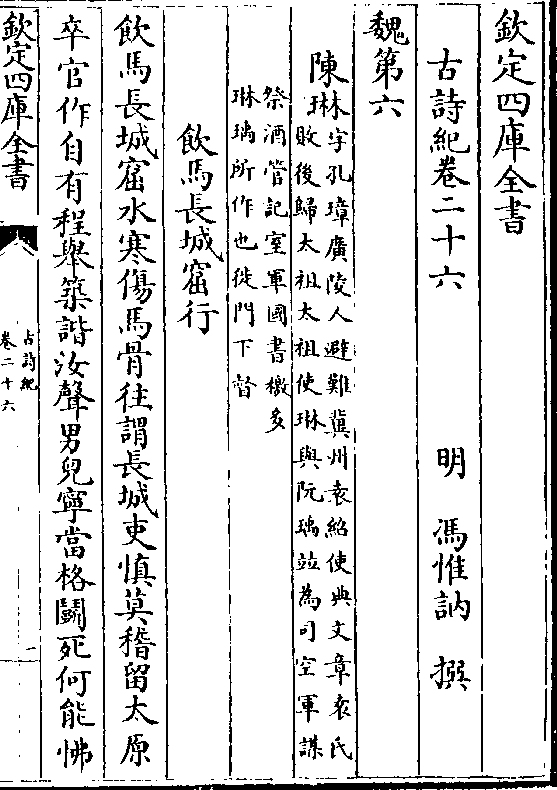 欽定四庫全書
古詩紀卷二十六
明 馮惟訥 撰
魏第六
陳琳
字孔璋廣陵人避難冀州袁紹使典文章袁氏
敗後歸太祖太祖使琳與阮瑀竝為司空軍謀
祭酒管記室軍國書檄多
琳瑀所作也徙門下督
飲馬長城窟行
飲馬長城窟水寒傷馬骨往謂長城吏慎莫稽留太原
卒官作自有程舉築諧汝聲男兒寧當格鬭死何能怫
欽定四庫全書
古詩紀
卷二十六
一